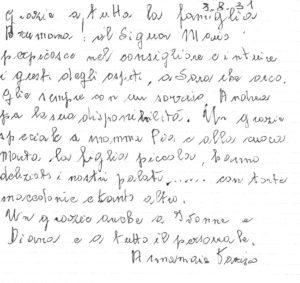 3-8-31
Grazie a tutta la famiglia
Brumana: al Signor Mario
perspicace nel consigliare e intuire
i gusti degli ospiti, a Sara che acco.
glie sempre con un sorriso, Andrea
per la sua disponibilità. Un grazie
speciale a mamma Pia e alla cuoca
Marta, la figlia piccola, hanno
deliziato i nostri palati....... con torte
macedonie e tanto altro.
Un grazie anche a Ivonne e
Diana e a tutto il personale.
Annamaria